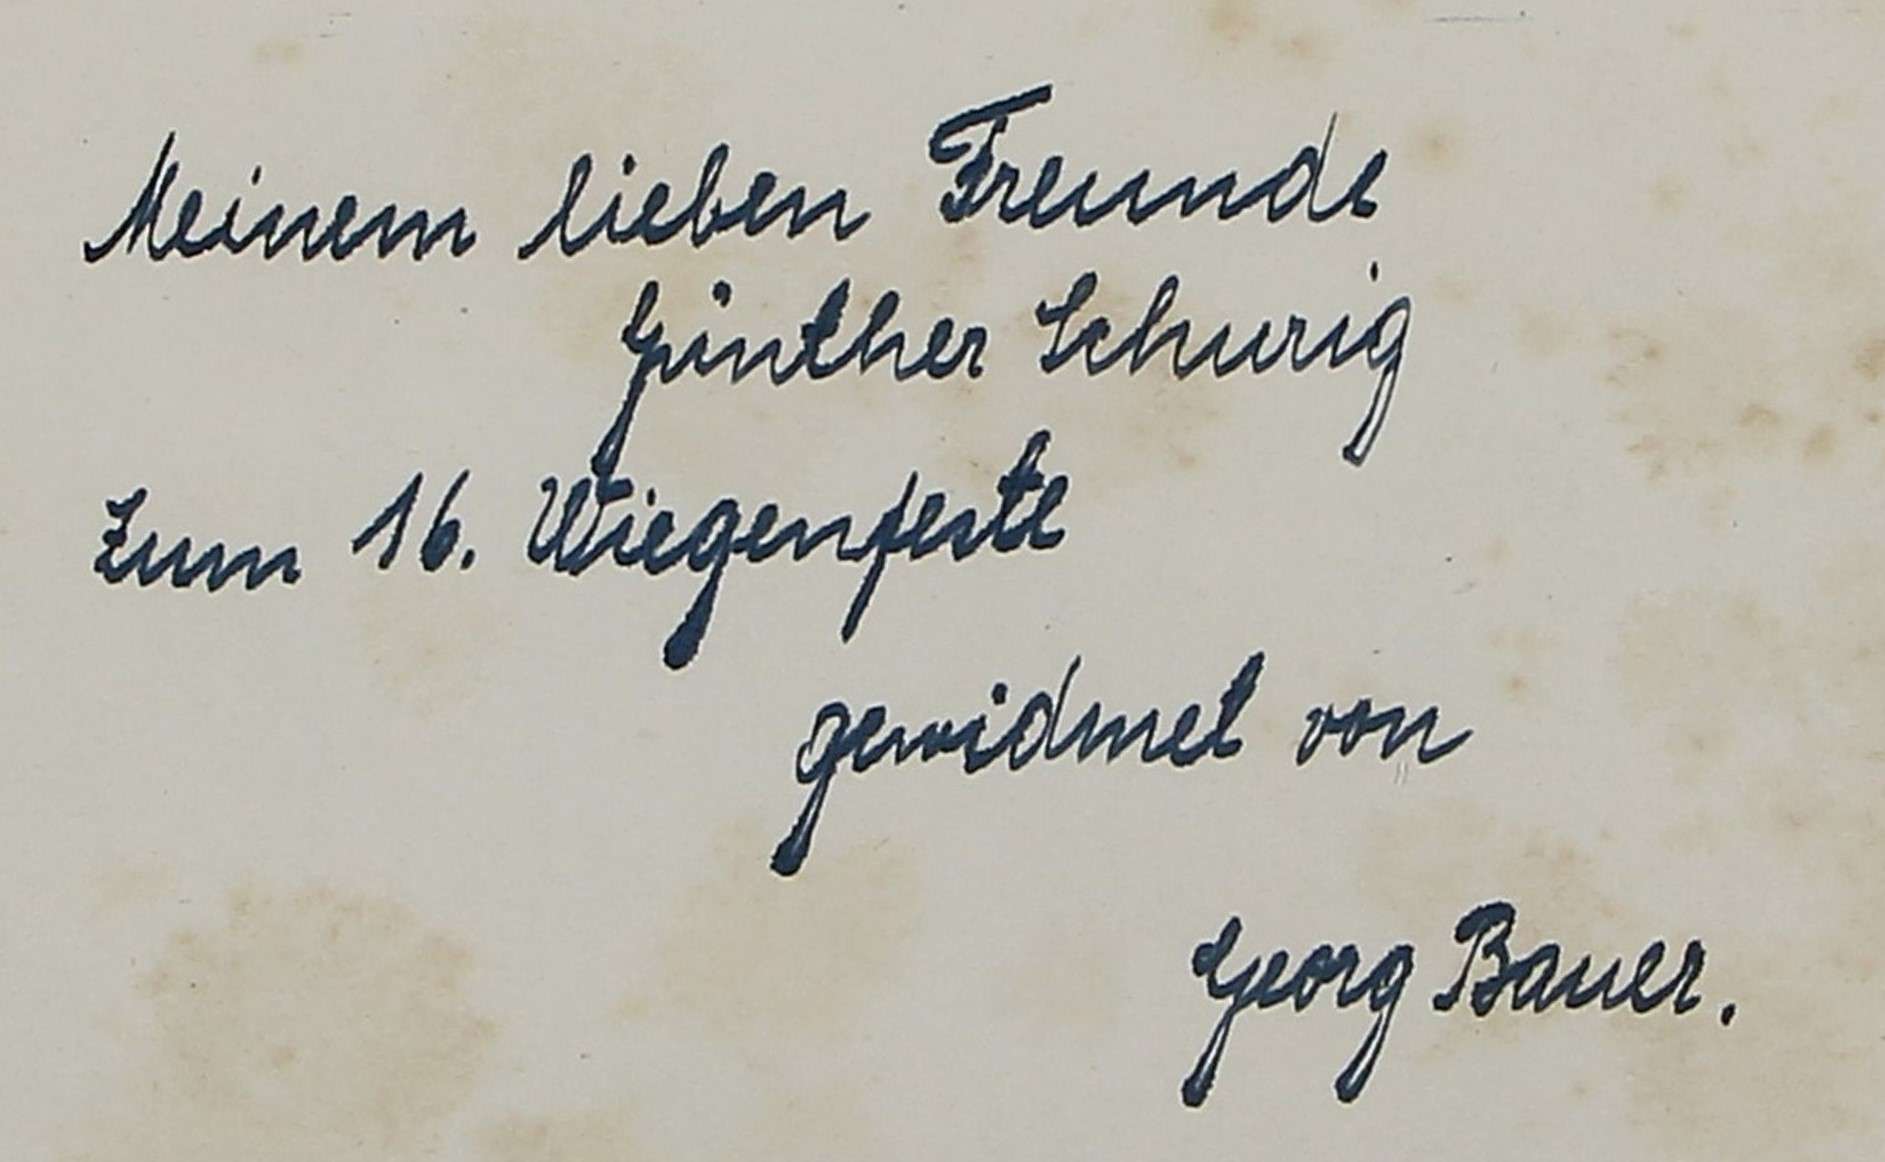 Meinem lieben Freunde
Günther Schurig
zum 16. Wiegenfeste
gewidmet von
Georg Bauer.